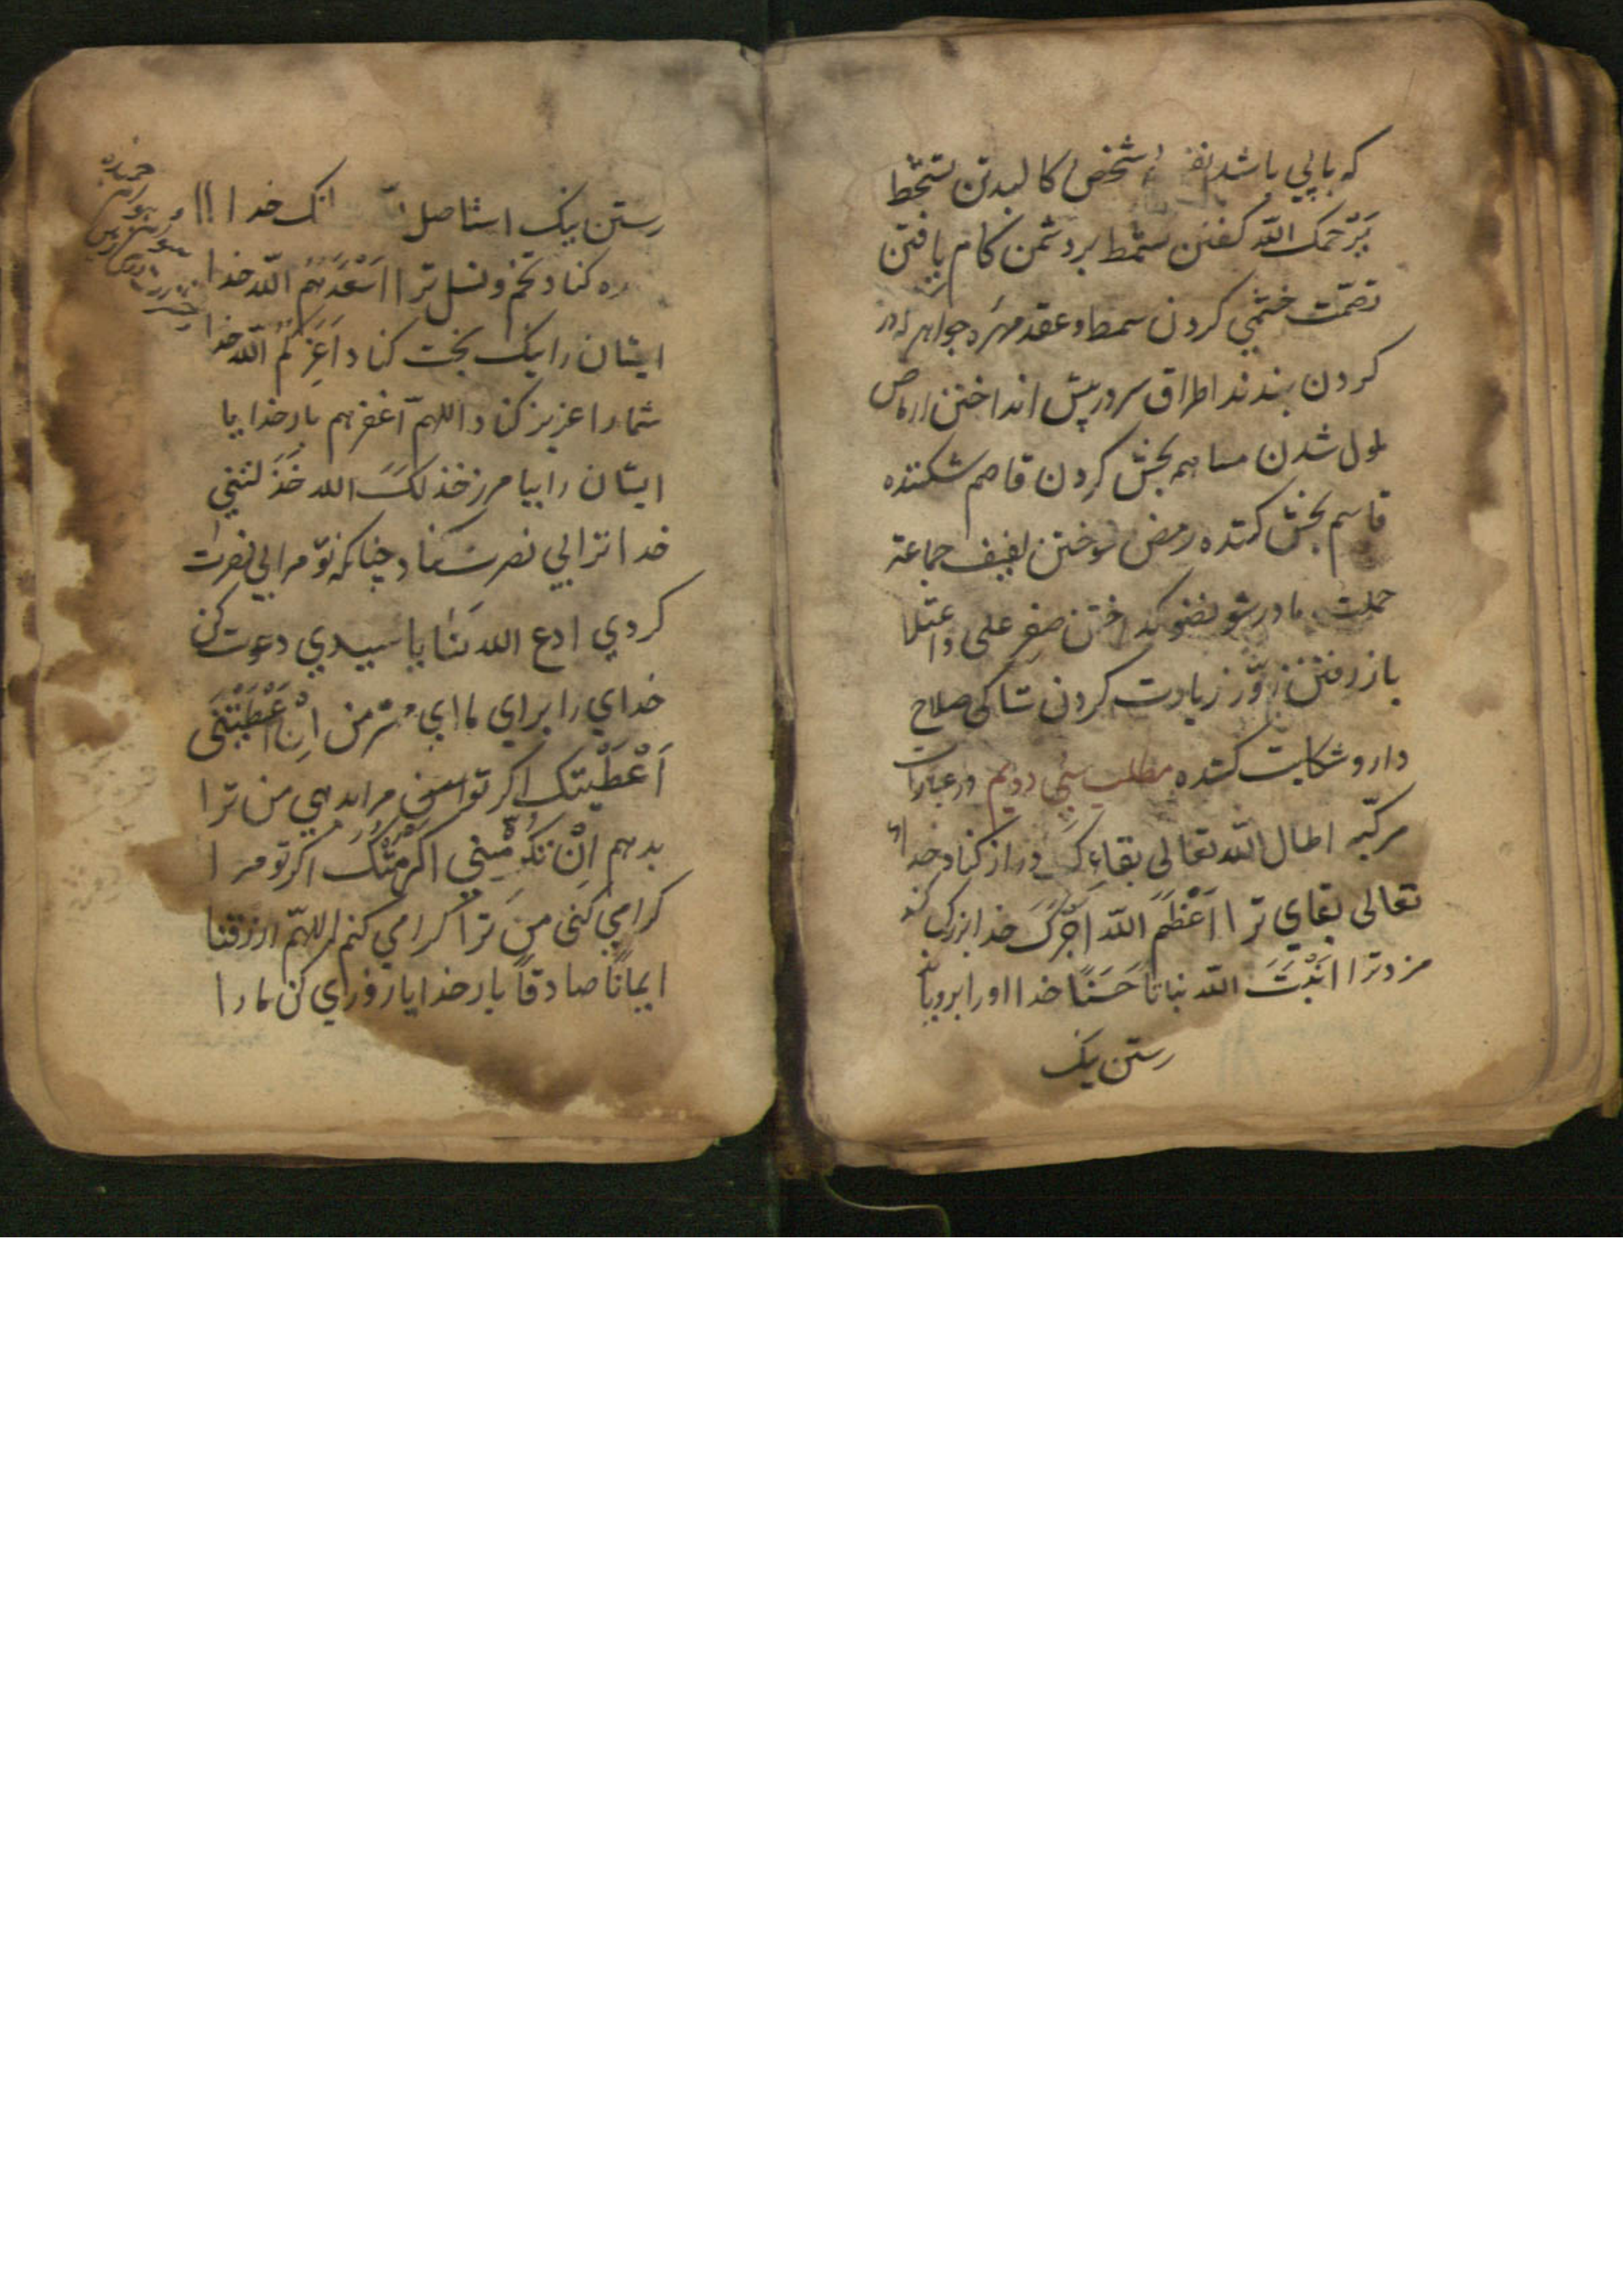 که باپی باشد شخص کالبد تن تشخط
یَرْحمک اللّه گفتن شمط بر دشمن کام یافتن
تصمّت ختمی کردن سمط و عقد مهره جواهر
کردن بندند اطراق سر در پیش انداختن
لمول شدن مساهمه بخش کردن قاصم شکننده
قاسم بخش کننده رمض سوختن لفیف جماعة
مادر شو نضو گداختن صفر علی واعتلا
باز رفتن زوّر زیارت کردن شاکی صلاح
دار و شکایت کننده مطلب سی دویم در عبارات
مرکبّه اطال اللّه تعالی بقاءک دراز کناد خدای
تعالی بقای ترا اَعْظَمَ اللّه اَجْرَکَ خدا بزرگ کند
مزد ترا اَنْبَتَ اللّه نباتاً حَسَنًا خدا او را برویاند
رستن نیک
رستن نیک استاصل خدا
کناد تخم و نسل ترا اَسْعَدَهُم اللّه خدا
ایشان را نیک بخت کناد اَعَزَّکُم اللّه خدا
شما را عزیز کناد اللهمّ اغفر هم بار خدایا
ایشان را بیامرز خذلکَ اللّه خَذَلتنی
خدا ترا بی نصرت کناد چنانکه تو مرا بی نصرت
کردی ادع اللّه لنا یا سیدی دعوت کن
خدای را برای ما ای مهتر من اِنْ اَعْطَیْتَنی
اَعْطَیْتک اگر تو مرا بدهی من ترا
بدهم اِنْ تکْرمْنی اکْرمْتُکَ اگر تو مرا
گرامی کنی من ترا گرامی کنم اللهمّ ارزقنا
ایمانًا صادقاً بار خدایا روزی کن ما را